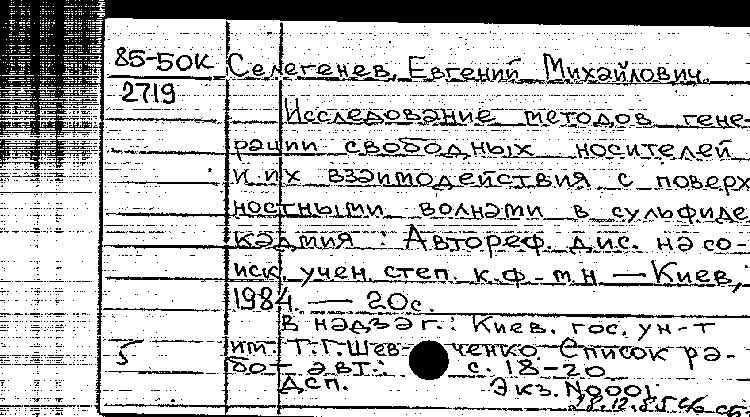 85-50К Селегенев, Евгений Михайлович.
2719
Исследование методов гене-
рации свободных носителей
и их взаимодействия с поверх
ностными волнами в сульфиде
кадмия : Автореф. дис. на со-
иск. учен. степ. к.ф.-м.н. — Киев,
1984. — 20с.
В надзаг.: Киев. гос. ун-т
5 им. Т.Г. Шевченко. Список ра-
бот авт.: с. 18-20
ДСП. Экз. N0001
28.12.85